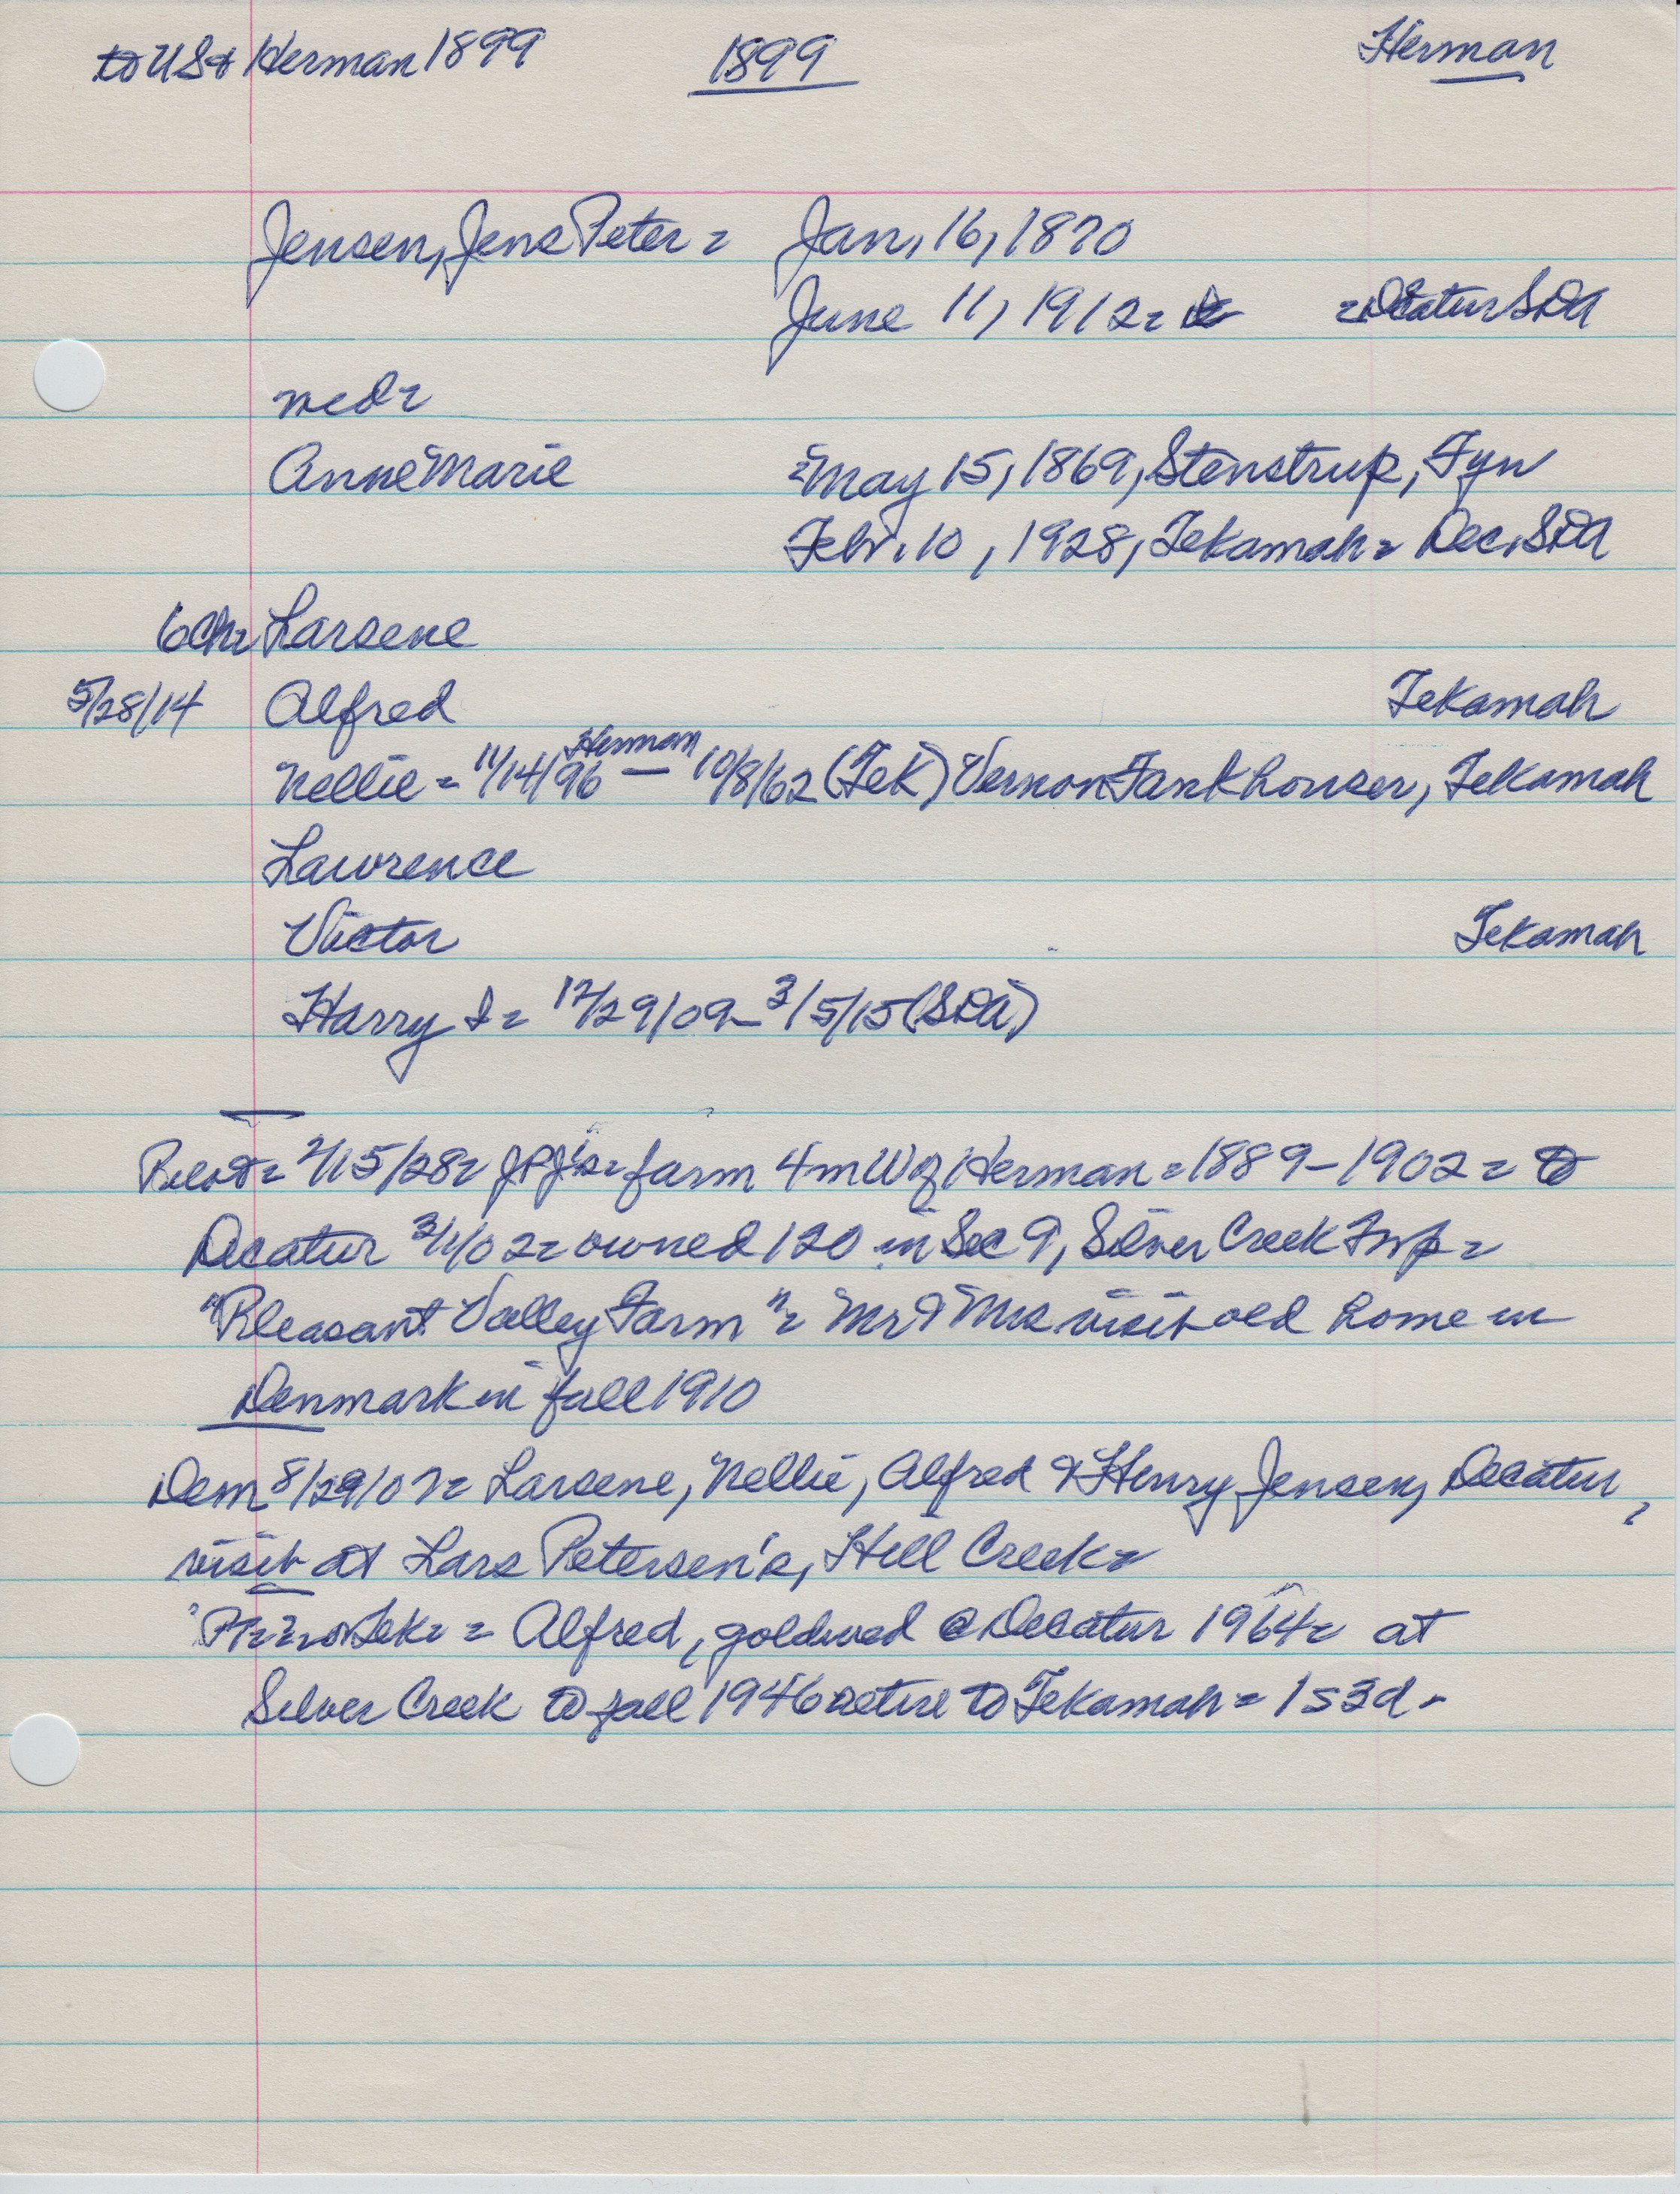 to US & Herman 1899 1899 Herman
Jensen, Jens Peter = Jan, 16, 1870
June 11, 1912 = = Decatur SDA
med =
Anne Marie = May 15, 1869, Stenstrup, Fyn
Febr. 10, 1928, Tekamah = Dec, SDA
6 Ch = Larsene
5/28/14 Alfred Tekamah
Herman
Nellie = 11/14/96 — 10/8/62 (Tek) Vernon Fankhouser, Tekamah
Lawrence
Victor Tekamah
Harry I = 12/29/09 - 3/5/15 (SDA)
Pilot = 2/15/28 = JPJ's = farm 4 m W of Herman = 1889 - 1902 = to
Decatur 3/1/02 = owned 120 in Sec 9, Silver Creek Twp =
"Pleasant Valley Farm" = Mr & Mrs visit old home in
Denmark in fall 1910
Dem 8/29/07 = Larsene, Nellie, Alfred & Henry Jensen, Decatur,
visit at Lars Petersen's, Hill Creek =
= Alfred, goldwed @ Decatur 1964 = at
Silver Creek to fall 1946 retire to Tekamah = 1s 3d -